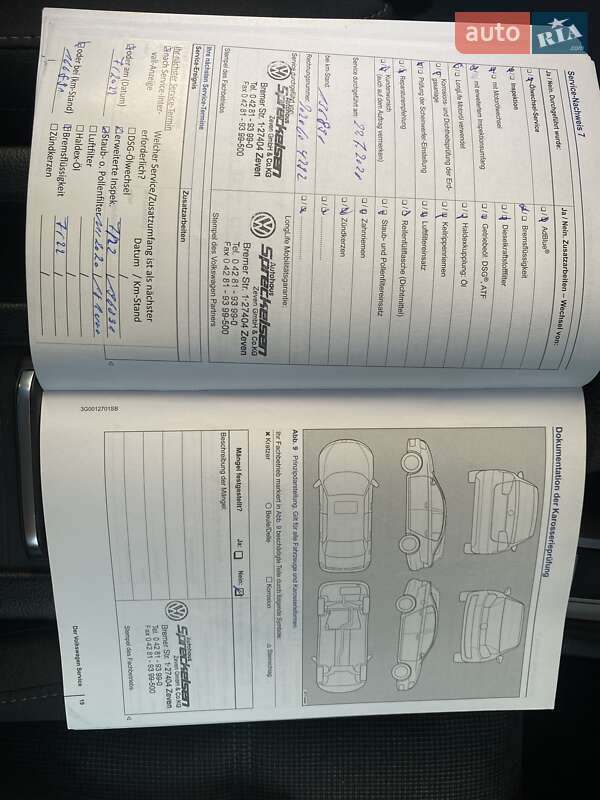 auto RIA.com
Service-Nachweis 7
Ja / Nein. Durchgeführt wurde:
Ölwechsel-Service
Inspektion
mit Motorölwechsel
mit erweitertem Inspektionsumfang
LongLife Motoröl verwendet
Korrosions- und Dichtheitsprüfung der Erd-
gasanlage
Prüfung der Scheinwerfer-Einstellung
Reparaturempfehlung
(auch auf dem Auftrag vermerken)
Kundenwunsch
Service durchgeführt am:
bei km-Stand:
Rechnungsnummer:
Autohaus
Spreckelsen
Zeven GmbH & Co.KG
Bremer Str. 1·27404 Zeven
Tel. 0 42 81 - 93 99-0
Fax 0 42 81 - 93 99-500
Stempel des Fachbetriebs
Ja / Nein. Zusatzarbeiten – Wechsel von:
AdBlue®
Bremsflüssigkeit
Dieselkraftstofffilter
Getriebeöl: DSG®, ATF
Haldexkupplung: Öl
Keilrippenriemen
Luftfiltereinsatz
Reifenfüllflasche (Dichtmittel)
Staub- und Pollenfiltereinsatz
Zahnriemen
Zündkerzen
LongLife Mobilitätsgarantie:
Autohaus
Spreckelsen
Zeven GmbH & Co.KG
Bremer Str. 1·27404 Zeven
Tel. 0 42 81 - 93 99-0
Fax 0 42 81 - 93 99-500
Stempel des Volkswagen Partners
Ihre nächsten Service-Termine
Service-Ereignis
Zusatzarbeiten
Ihr nächster Service-Termin
nach Service-Inter-
vall-Anzeige
oder am (Datum)
oder bei (km-Stand)
Welcher Service/Zusatzumfang ist als nächster
erforderlich? Datum / Km-Stand
DSG-Ölwechsel
erweiterte Inspek. 7/22
Staub- o. Pollenfilter
Luftfilter
Haldex-Öl
Bremsflüssigkeit 7/22
Zündkerzen
Dokumentation der Karosserieprüfung
Abb. 9 Prinzipdarstellung: Gilt für alle Fahrzeuge und Karosserieformen.
Ihr Fachbetrieb markiert in Abb. 9 beschädigte Teile durch folgende Symbole:
× Kratzer ○ Beule/Delle □ Korrosion △ Steinschlag
Mängel festgestellt? Ja: Nein:
Beschreibung der Mängel
Autohaus
Spreckelsen
Zeven GmbH & Co.KG
Bremer Str. 1·27404 Zeven
Tel. 0 42 81 - 93 99-0
Fax 0 42 81 - 93 99-500
Stempel des Fachbetriebs
3G0012701SB
Der Volkswagen Service 19